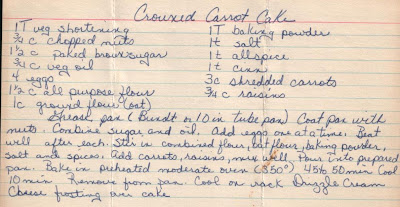 Crowned Carrot Cake
1T veg shortening
3/4 c chopped nuts
1 1/2 c Paked brown sugar
3/4 c veg oil
4 eggs
1 1/2 c all purpose flour
1c ground flour (oat)
1T baking powder
1t salt
1t allspice
1t cinn
3c shredded carrots
3/4 c raisins
Grease pan (Bundt or 10 in tube pan) Coat pan with
nuts. Combine sugar and oil. Add eggs one at a time. Beat
well after each. Stir in combined flour, oat flour, baking powder,
salt and spices. Add carrots, raisins, mix well. Pour into prepared
pan. Bake in preheated moderate oven (350°) 45 to 50 min Cool
10 min. Remove from pan. Cool on rack Drizzle Cream
Cheese frosting over cake